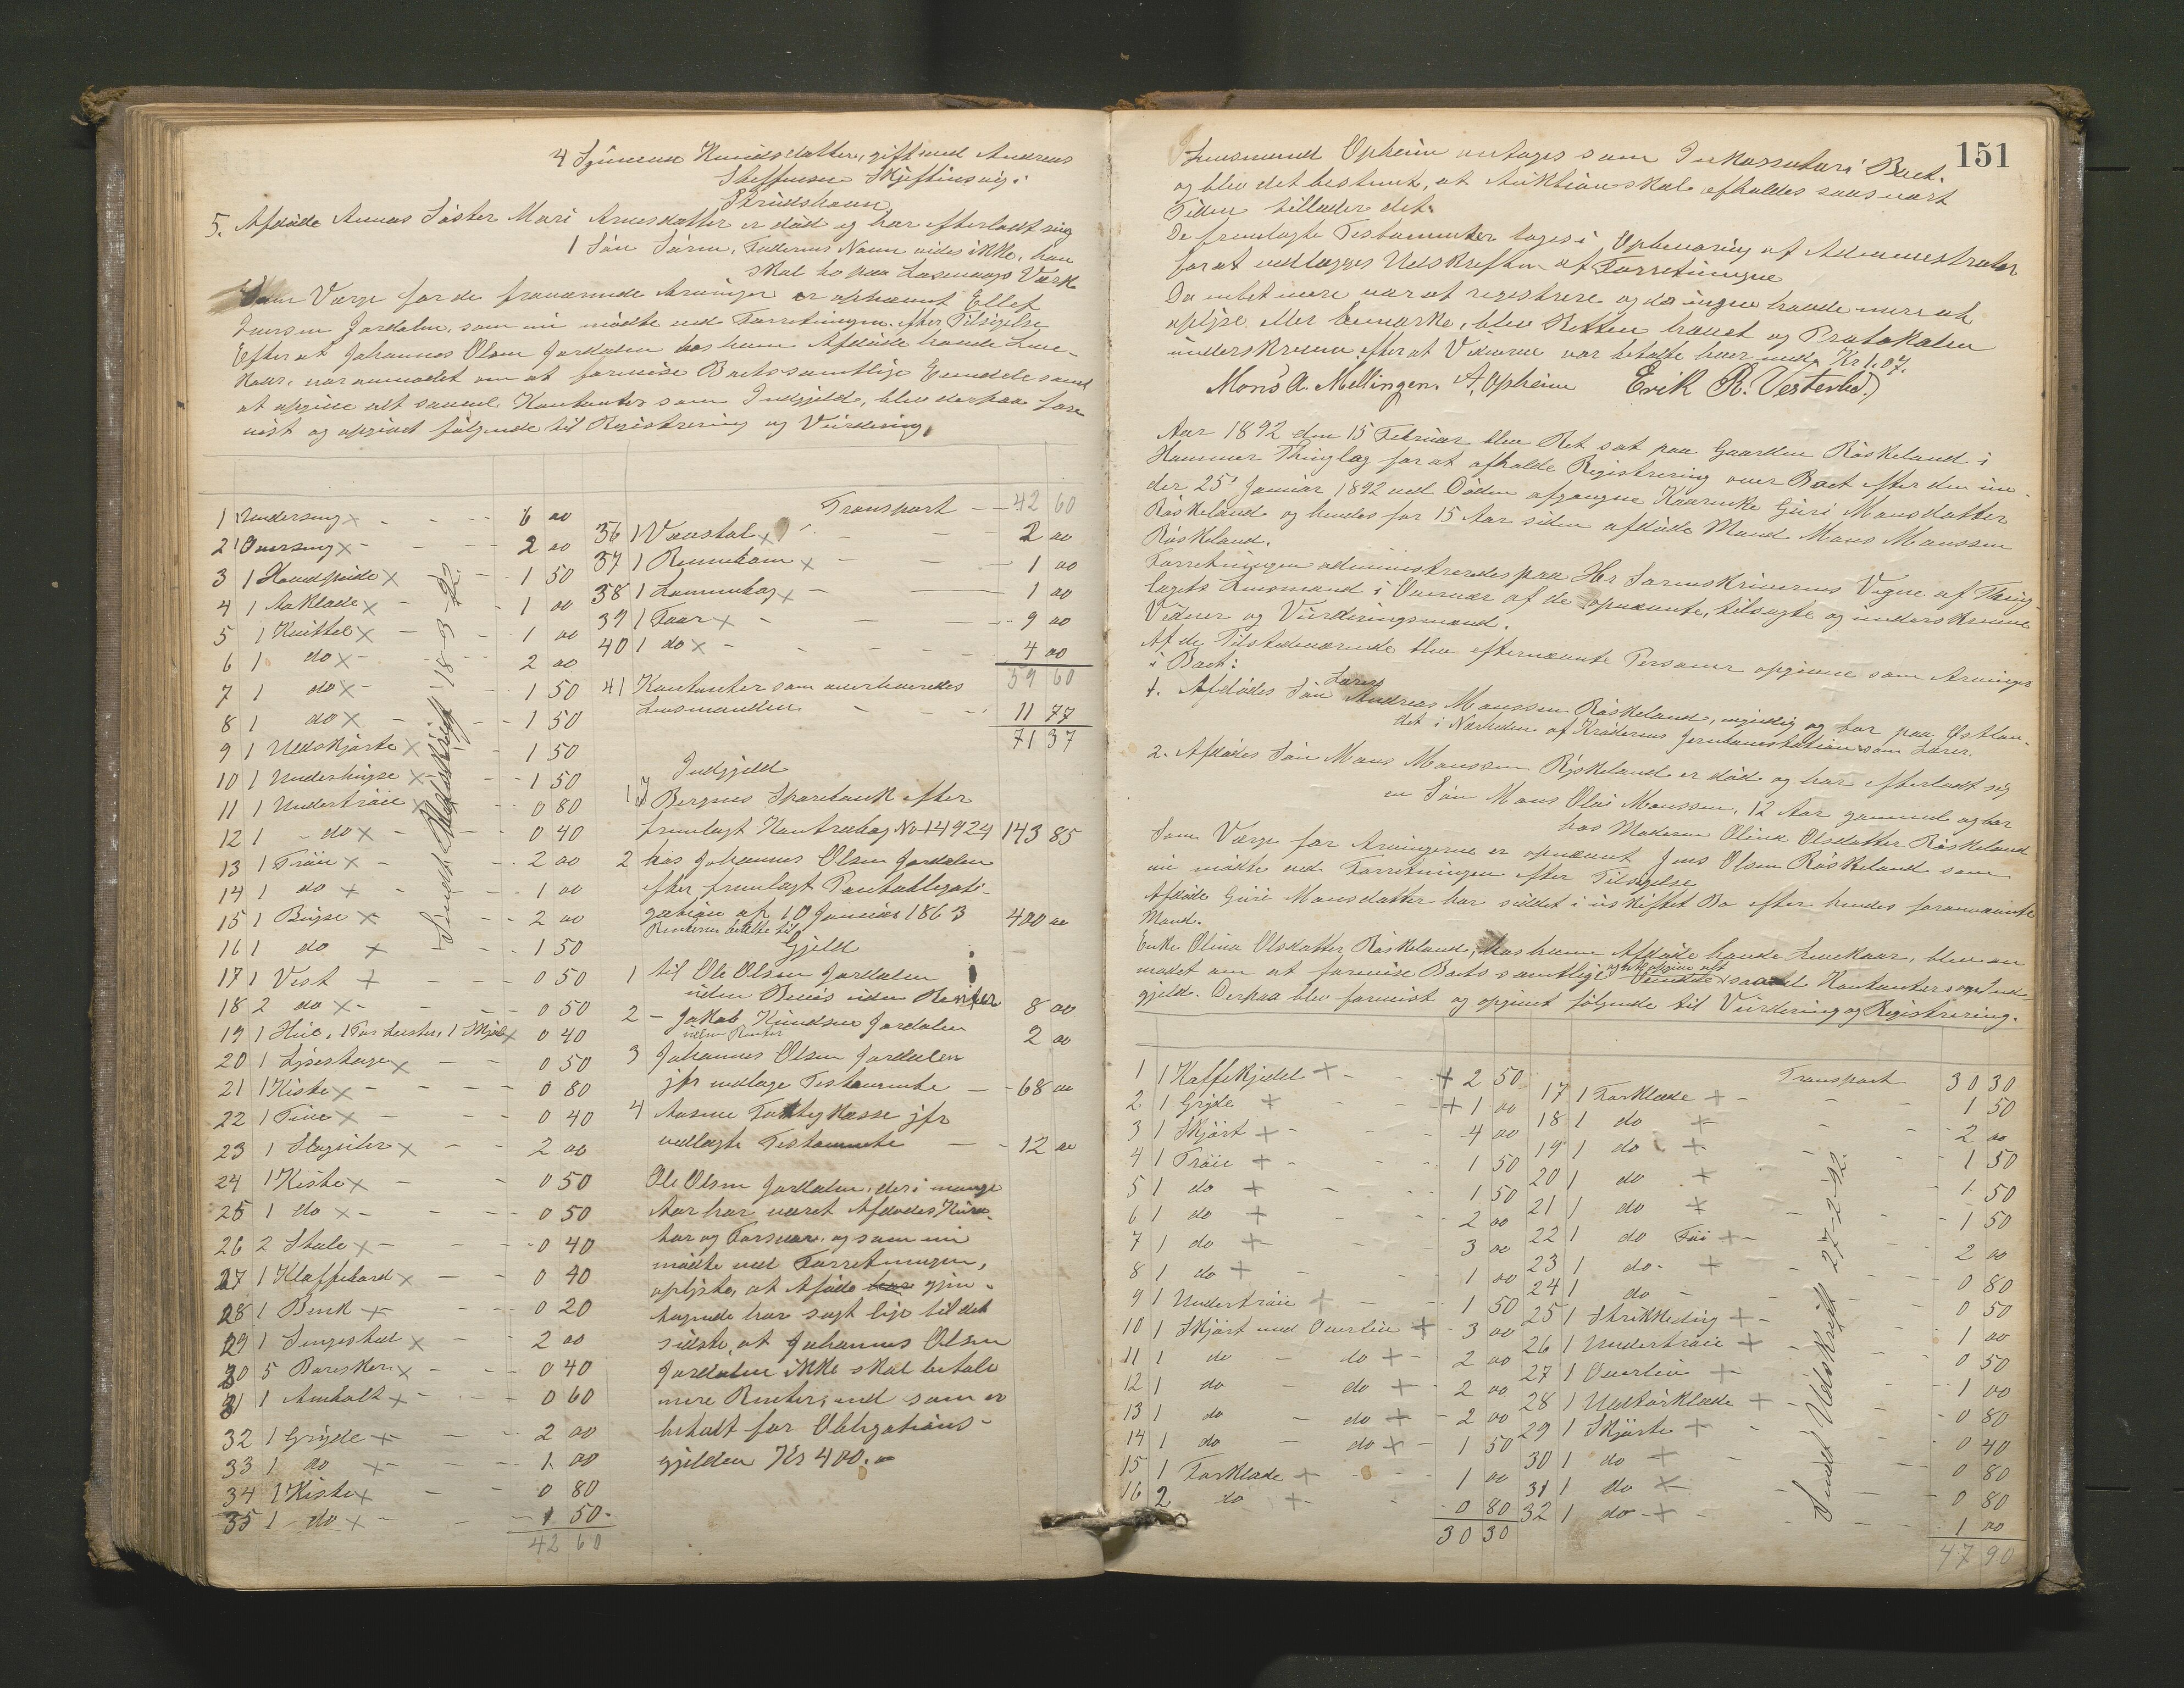 4 Gjunena Knudsdatter, gift med Andreas
Steffensen Skjeftinsvig:
Strudshavn
5. Afdøde Annas Søster Mari Arnesdatter er død og har efterladt sig
1 Søn Sørn, Faderens Navn vides ikke, han
skal bo paa Laxevaags Værk
Som Værge for de fraværende Arvinger er opnævnt Ellef
Iversen Jordalen, som nu mødte ved Forretningen efter Tilsigelse
Efter at Johannes Olsen Jordalen hos hvem Afdøde havde Leve-
kaar, var anmodet om at forevise Boets samtlige Eiendele samt
at opgive alt saavel Kontanter som Indgjeld, blev derpaa fore
vist og opgivet følgende til Registrering og Vurdering,
1 1 Underseng x - 6 00
2 1 Overseng x - 2 00
3 1 Hovedpude x - 1 50
4 1 Aaklæde x - 1 00
5 1 Kvittel x - 1 00
6 1 do x - 2 00
7 1 do x - 1 50
8 1 do x - 1 50
9 1 Uldskjørte x 1 50
10 1 Underbugse x - 1 50
11 1 Undertrøie x 0 80
12 1 do x - 0 40
13 1 Trøie x - 2 00
14 1 do x - 1 00
15 1 Bugse x - 2 00
16 1 do x - 1 50
17 1 Vest x - 0 50
18 2 do x - 0 50
19 1 Hue, 1 Par Hoser, 1 Skjærf x 0 40
20 1 Lysestage x 0 50
21 1 Kiste x - 0 80
22 1 Tine x - 0 40
23 1 Slagsiler x - 2 00
24 1 Kiste x - 0 50
25 1 do x - 0 50
26 2 Stole x - 0 40
27 1 Klaffebord x - 0 40
28 1 Benk x - 0 20
29 1 Sengested x 2 00
30 5 x - 0 40
31 1 Ambolt x - 0 60
32 1 Gryde x - 2 00
33 1 do x - 1 00
34 1 Kiste x - 0 80
35 1 do x - 1 50
42 60
Sendt Udskrift 18-3-92.
Transport - 42 60
36 1 Vævstol x - 2 00
37 1 Rennebom x - 1 00
38 1 x - 1 00
39 1 Faar x - 9 00
40 1 do x - 4 00
59 60
41 Kontanter som overleveredes
Lensmanden - 11 77
71 37
Indgjeld
1 I Bergens Sparebank efter
fremlagt Kontrabog No 14924 143 85
2 hos Johannes Olsen Jordalen
efter fremlagt Pantobligati-
gation af 10 Januar 1863 400 00
Renterne betalte til
Gjeld
1 til Ole Olsen Jordalen
uden Bevis uden Renter 8 00
2 - Jakob Knudsen Jordalen 2 00
uden Renter
3 Johannes Olsen Jordalen
jfr vedlage Testamente - 68 00
4 Aasene Fattigkasse jfr
vedlagte Testamente - 12 00
Ole Olsen Jordalen, der i mange
Aar har været Afdødes Kura-
tor og Forsvar, og som nu
mødte ved Forretningen,
oplyste, at Afdøde har gjen-
tagende har sagt lige til det
sidste, at Johannes Olsen
Jordalen ikke skal betale
mere Renter, end som er
betalt for Obligations-
gjelden Kr 400.00
151
Lensmand Opheim antages som Inkassator i Boet.
og blev det bestemt, at Auktion skal afholdes saasnart
Tiden tillader det.
De fremlagte Testamenter toges i Opbevaring af Administrator
for at vedlægges Udskriften af Forretningen
Da intet mere var at registrere og da ingen havde mere at
oplyse eller bemærke, blev Retten hævet og Protokollen
underskreven efter at Vidnerne var betalte hver med Kr 1.07.
Mons A. Mellingen. A, Opheim Erik R. Vesterli.)
Aar 1892 den 15 Februar blev Ret sat paa Gaarden Røskeland i
Hammer Thinglag for at afholde Registrering over Boet efter den un-
der 25' Januar 1892 ved Døden afgangne Kaarenke Guri Monsdatter
Røskeland og hendes for 15 Aar siden afdøde Mand Mons Monssen
Røskeland.
Forretningen administreredes paa Hr Sorenskriverens Vegne af Thing-
lagets Lensmand i Overvær af de opnævnte, tilsagte og underskrevne
Vidner og Vurderingsmænd.
Af de Tilstedeværende blev efternævnte Personer opgivne som Arvinger
i Boet:
1. Afdødes Søn Lærer Andreas Monssen Røskeland, myndig og bor paa Østlan-
det i Nærheden af Krøderens Jernbanestation som Lærer.
2. Afdødes Søn Mons Monssen Røskeland er død og har efterladt sig
en Søn Mons Olai Monssen, 12 Aar gammel og bor
hos Moderen Olina Olsdatter Røskeland
Som Værge for Arvingerne er opnævnt Jens Olsen Røskeland som
nu mødte ved Forretningen efter Tilsigelse
Afdøde Guri Monsdatter har siddet i uskiftet Bo efter hendes forannævnte
Mand.
Enke Olina Olsdatter Røskeland, hos hvem Afdøde havde Levekaar, blev an
modet om at forevise Boets samtlige Eiendele og at opgive alt saavel Kontanter som Ind-
gjeld. Derpaa blev forevist og opgivet følgende til Vurdering og Registrering.
1 1 Kaffekjedel + - + 2 50
2 1 Gryde + + 1 00
3 1 Skjørt + - 4 00
4 1 Trøie + - 1 50
5 1 do + - 1 50
6 1 do + - 2 00
7 1 do + - 3 00
8 1 do + - 1 00
9 1 Undertrøie + - 1 50
10 1 Skjørt med Overliv + 3 00
11 1 do - do + - 2 00
12 1 do - do + - 2 00
13 1 do - do + - 2 00
14 1 do - do + - 1 50
15 1 Forklæde + - 1 00
16 2 do + - 0 80
30 30
Transport 30 30
17 1 Forklæde + - 1 50
18 1 do + - 2 00
19 1 do + 1 50
20 1 do + 1 50
21 1 do + - 1 50
22 1 do + - 2 00
23 1 do + 0 80
24 1 do - 0 50
25 1 Strikketøig + - 1 00
26 1 Undertrøie + - 0 50
27 1 Overliv + 1 00
28 1 + - 0 80
29 1 Skjørte + - 0 40
30 1 do + 0 80
31 1 do + - 0 80
32 1 do + - 1 00
47 90
Sendt Udskrift 27-2-92.